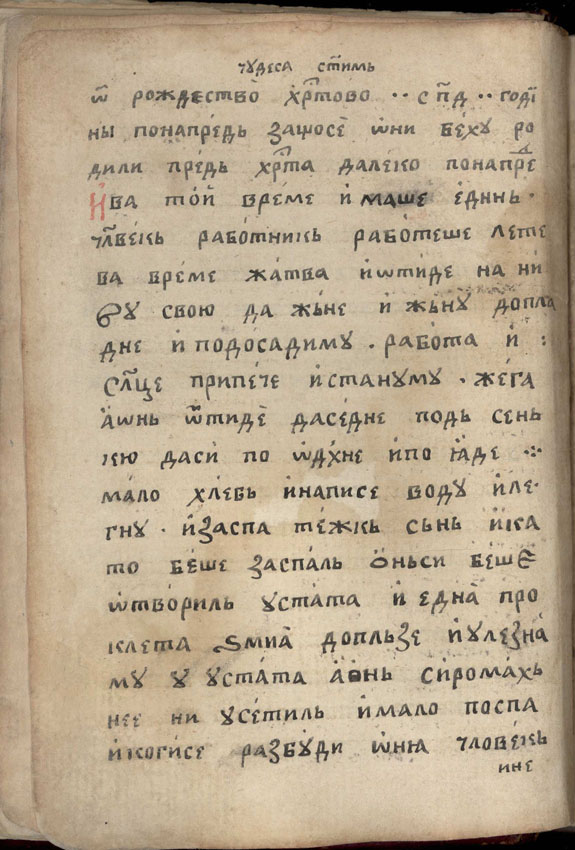 чꙋдеса ст҃имь
ѿ рождество̀ хрⷭ҇тово ·· с п҃д ·· годі
ны понапредь защосѐ ѡ҆ни бе́хꙋ ро
дили предь хрⷭ҇та далеко понапрⷣе
И҆ ва то́й вре́ме и҆маше е҆динь ·
чл҃векь рабо́тникь рабо́теше лете
ва вре́ме жа́тва и҆ѿтиде на ни
вꙋ свою да жь́не и҆ жь́нꙋ допла
дне и҆ подоса́димꙋ · рабо́та и҆ :
сл҃це припе́че и҆станꙋмꙋ · же́га
а҆ѡнь ѿтидѐ дасе́дне подь сень
кю даси́ по ѡ҆дх́не и҆по ꙗ҆де ·:·
мало хлебь и҆написе водꙋ и҆ле·
гнꙋ · и҆заспа те́жкь сьнь и҆ка
то бе́ше заспаль ѻ҆ньси бе́ше
ѡ҆тво́риль ꙋста́та и҆ една̀ про
клета ѕмиа̀ допльзе и҆ꙋлезна̀
мꙋ ꙋ ꙋста́та а҆ѻнь си́рома́хь
нее ни ꙋсе́тиль и҆мало поспа
и҆коги́се разбꙋди ѡ҆нꙗ чловекь
ине